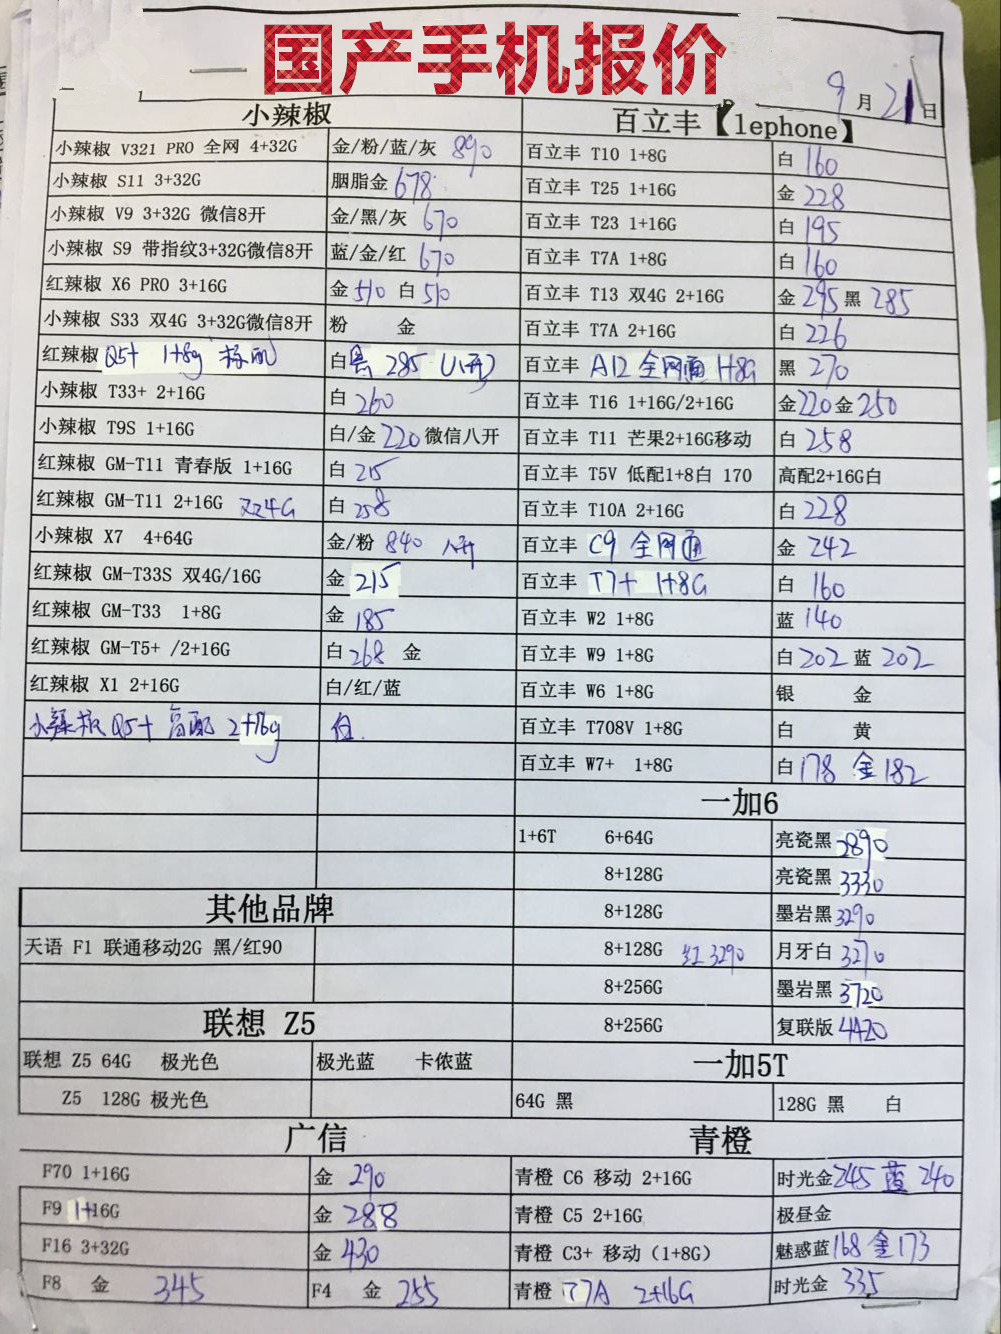 国产手机报价
9月21日
小辣椒
小辣椒 V321 PRO 全网 4+32G 金/粉/蓝/灰 890
小辣椒 S11 3+32G 胭脂金 678
小辣椒 V9 3+32G 微信8开 金/黑/灰 670
小辣椒 S9 带指纹3+32G微信8开 蓝/金/红 670
红辣椒 X6 PRO 3+16G 金 510 白 510
小辣椒 S33 双4G 3+32G微信8开 粉 金
红辣椒 Q5+ 1+8g 标配 白 黑 285
小辣椒 T33+ 2+16G 白 260
小辣椒 T9S 1+16G 白/金 220 微信八开
红辣椒 GM-T11 青春版 1+16G 白 215
红辣椒 GM-T11 2+16G 双4G 白 258
小辣椒 X7 4+64G 金/粉 840 八开
红辣椒 GM-T33S 双4G/16G 金 215
红辣椒 GM-T33 1+8G 金 185
红辣椒 GM-T5+ /2+16G 白 268 金
红辣椒 X1 2+16G 白/红/蓝
小辣椒 Q5+ 高配 2+16g 白
百立丰【lephone】
百立丰 T10 1+8G 白 160
百立丰 T25 1+16G 金 228
百立丰 T23 1+16G 白 195
百立丰 T7A 1+8G 白 160
百立丰 T13 双4G 2+16G 金 295 黑 285
百立丰 T7A 2+16G 白 226
百立丰 A12 全网通 1+8G 黑 270
百立丰 T16 1+16G/2+16G 金220金250
百立丰 T11 芒果2+16G移动 白 258
百立丰 T5V 低配1+8白 170 高配2+16G白
百立丰 T10A 2+16G 白 228
百立丰 C9 全网通 金 242
百立丰 T7+ 1+8G 白 160
百立丰 W2 1+8G 蓝 140
百立丰 W9 1+8G 白 202 蓝 202
百立丰 W6 1+8G 银 金
百立丰 T708V 1+8G 白 黄
百立丰 W7+ 1+8G 白 178 金 182
一加6
1+6T 6+64G 亮瓷黑 2890
8+128G 亮瓷黑 3330
8+128G 墨岩黑 3290
8+128G 红 3290 月牙白 3270
8+256G 墨岩黑 3720
8+256G 复联版 4420
其他品牌
天语 F1 联通移动2G 黑/红90
联想 Z5
联想 Z5 64G 极光色 极光蓝 卡侬蓝
Z5 128G 极光色
一加5T
64G 黑 128G 黑 白
广信
F70 1+16G 金 290
F9 1+16G 金 288
F16 3+32G 金 430
F8 金 345 F4 金 255
青橙
青橙 C6 移动 2+16G 时光金245 蓝 240
青橙 C5 2+16G 极昼金
青橙 C3+ 移动（1+8G） 魅惑蓝 168 金 173
青橙 T7A 2+16G 时光金 335